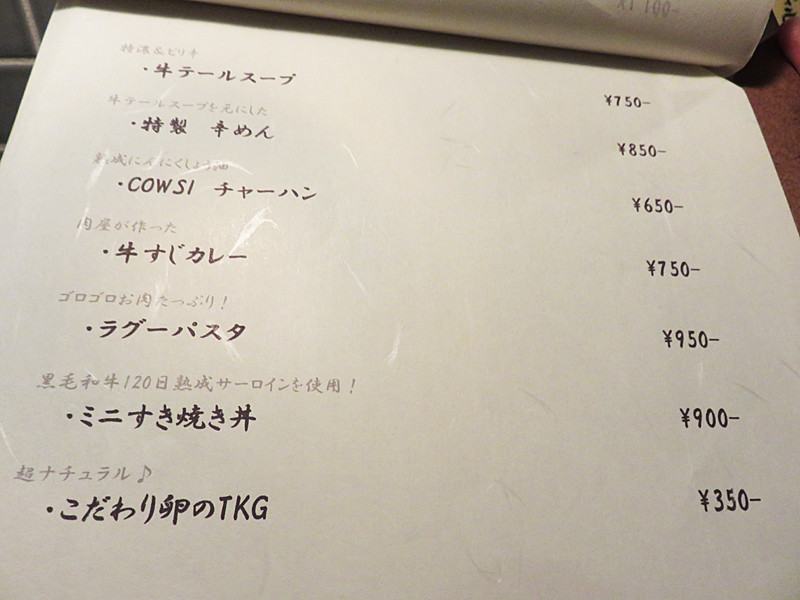 特濃&ピリ辛
・牛テールスープ ¥750-
牛テールスープを元にした
・特製 辛めん ¥850-
熟成にんにくしょう油
・COWSI チャーハン ¥650-
肉屋が作った
・牛すじカレー ¥750-
ゴロゴロお肉たっぷり!
・ラグーパスタ ¥950-
黒毛和牛120日熟成サーロインを使用!
・ミニすき焼き丼 ¥900-
超ナチュラル♪
・こだわり卵のTKG ¥350-